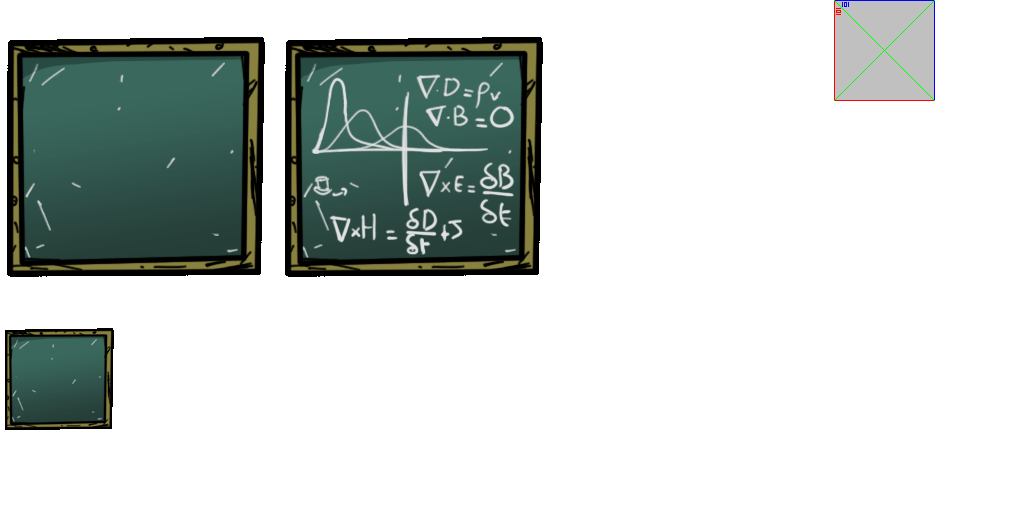 ∇·D = ρv
∇·B = 0
∇×E = δB/δt
∇×H = δD/δt + J
101